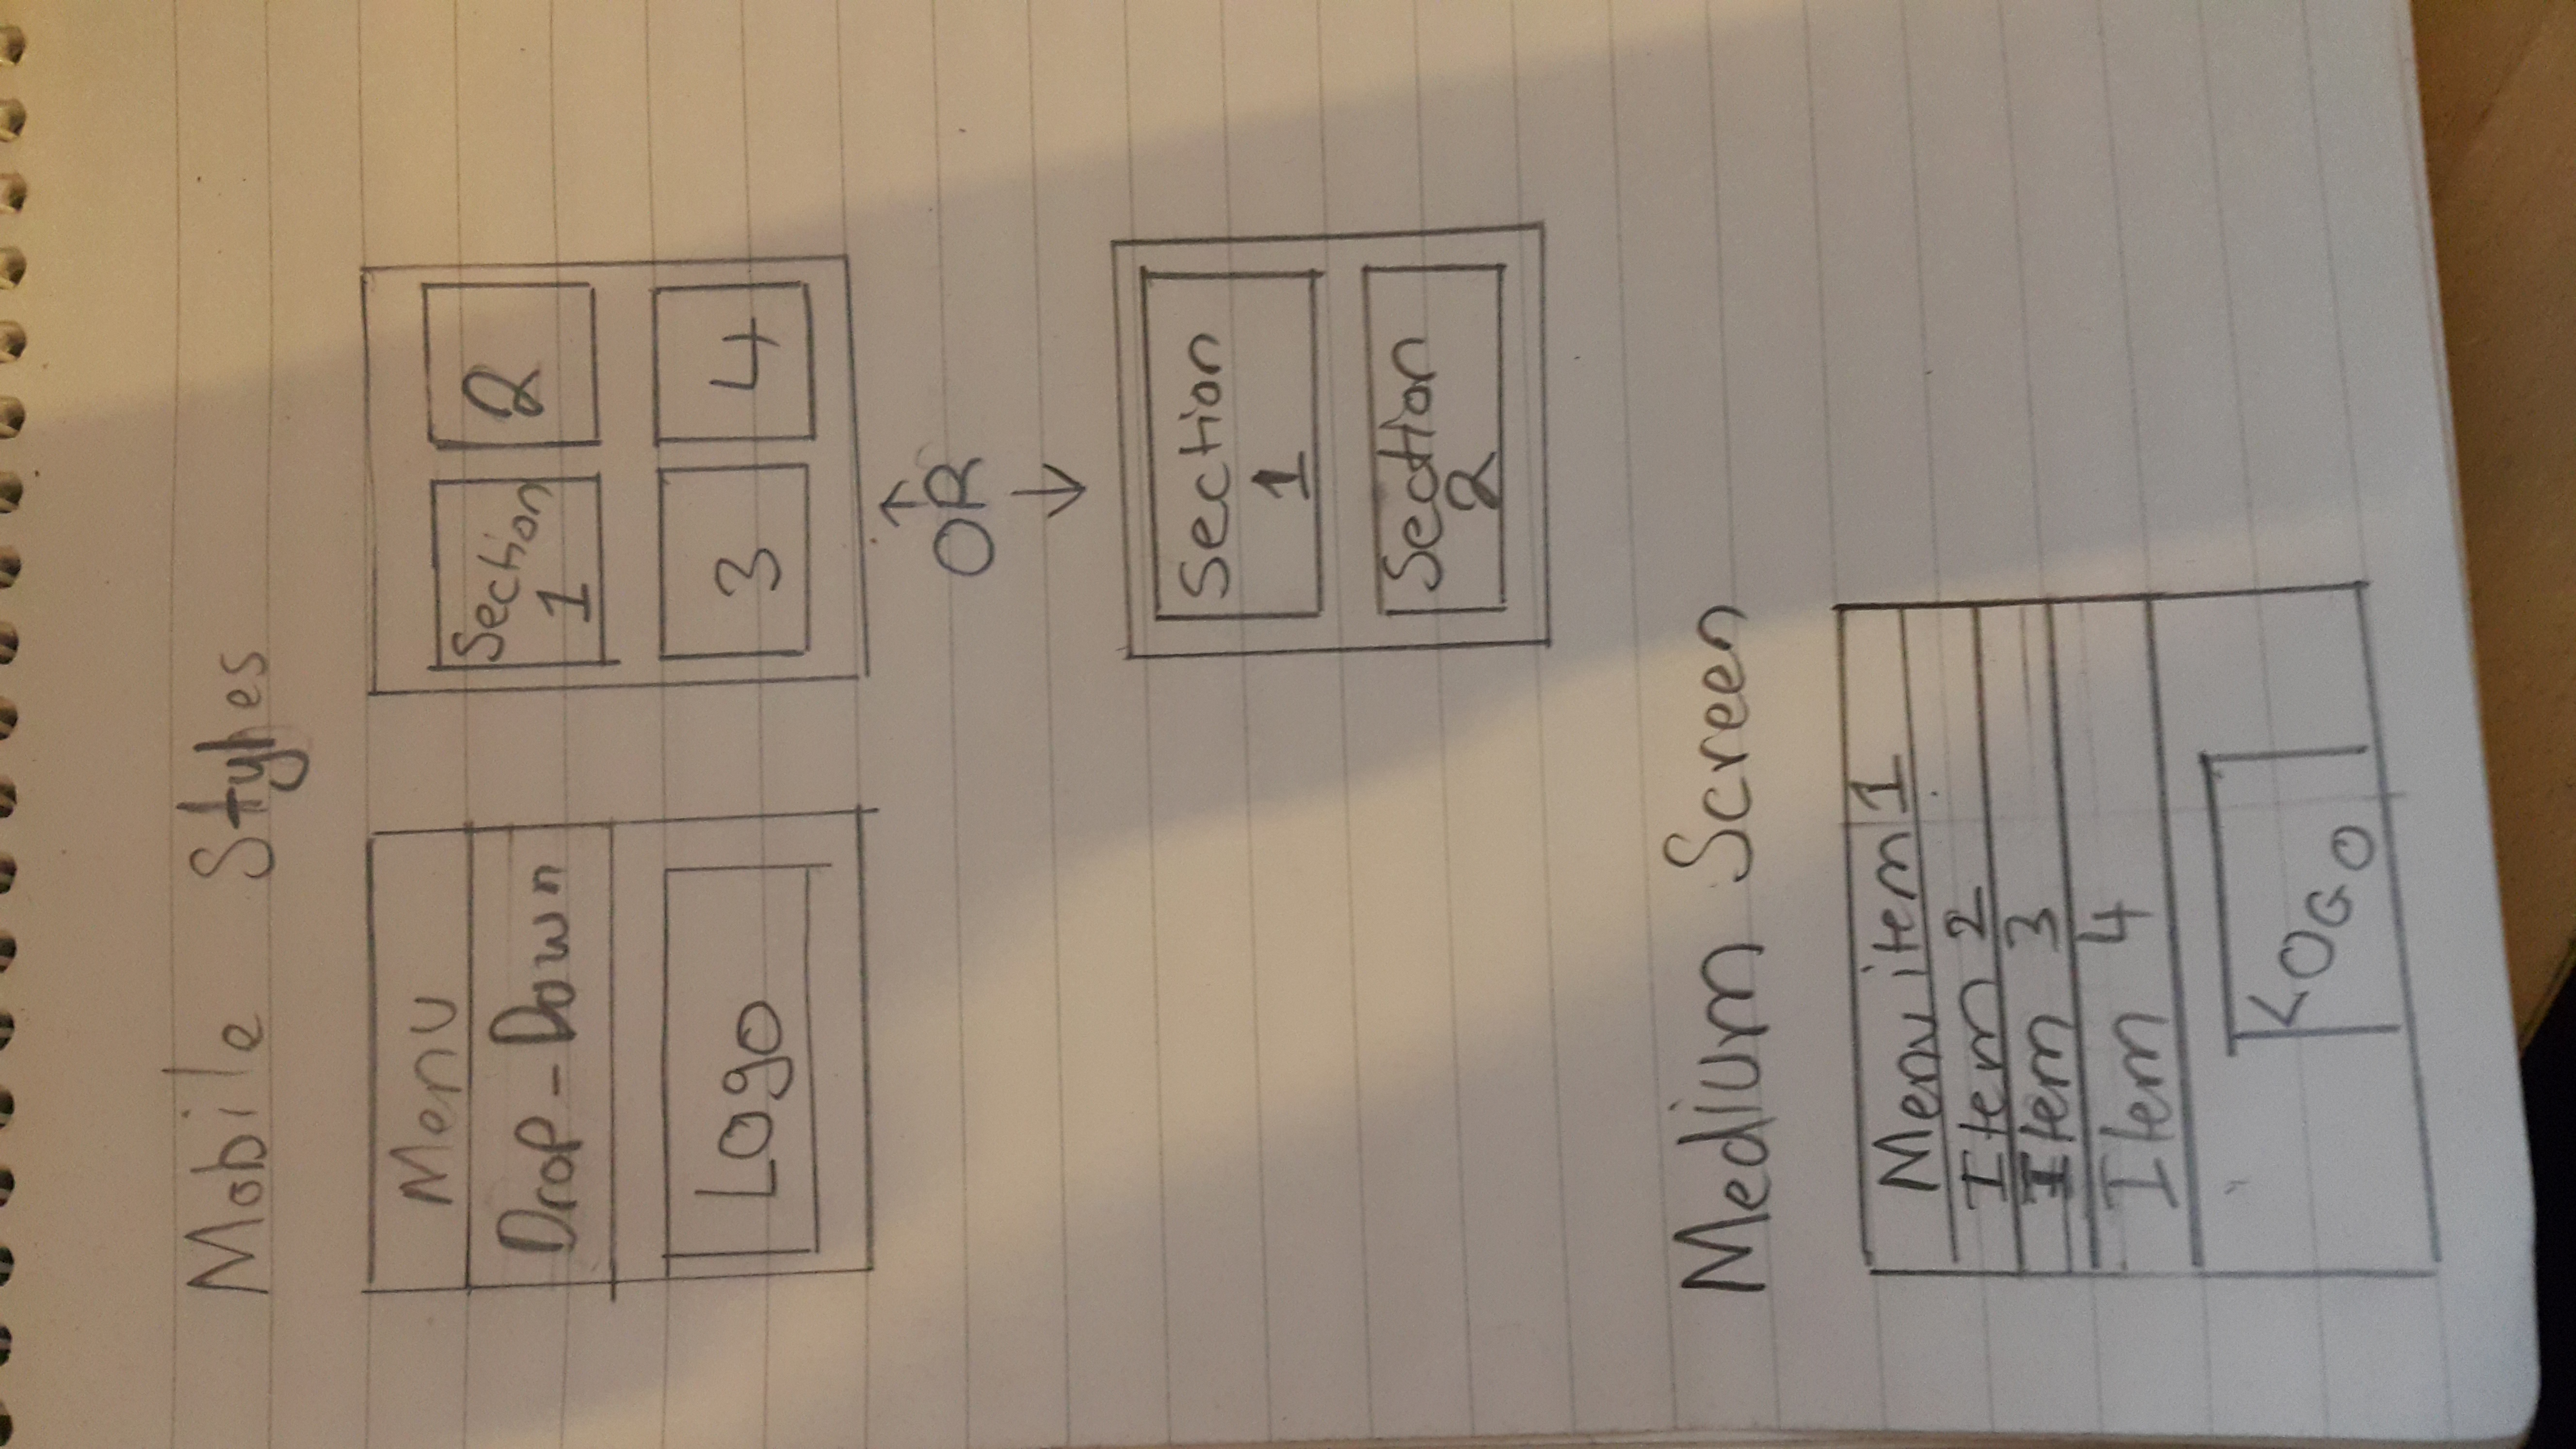 Mobile Styles
Menu
Drop-Down
Logo
Section
1
2
3
4
OR
Section
1
Section
2
Medium Screen
Menu item 1
Item 2
Item 3
Item 4
LOGO